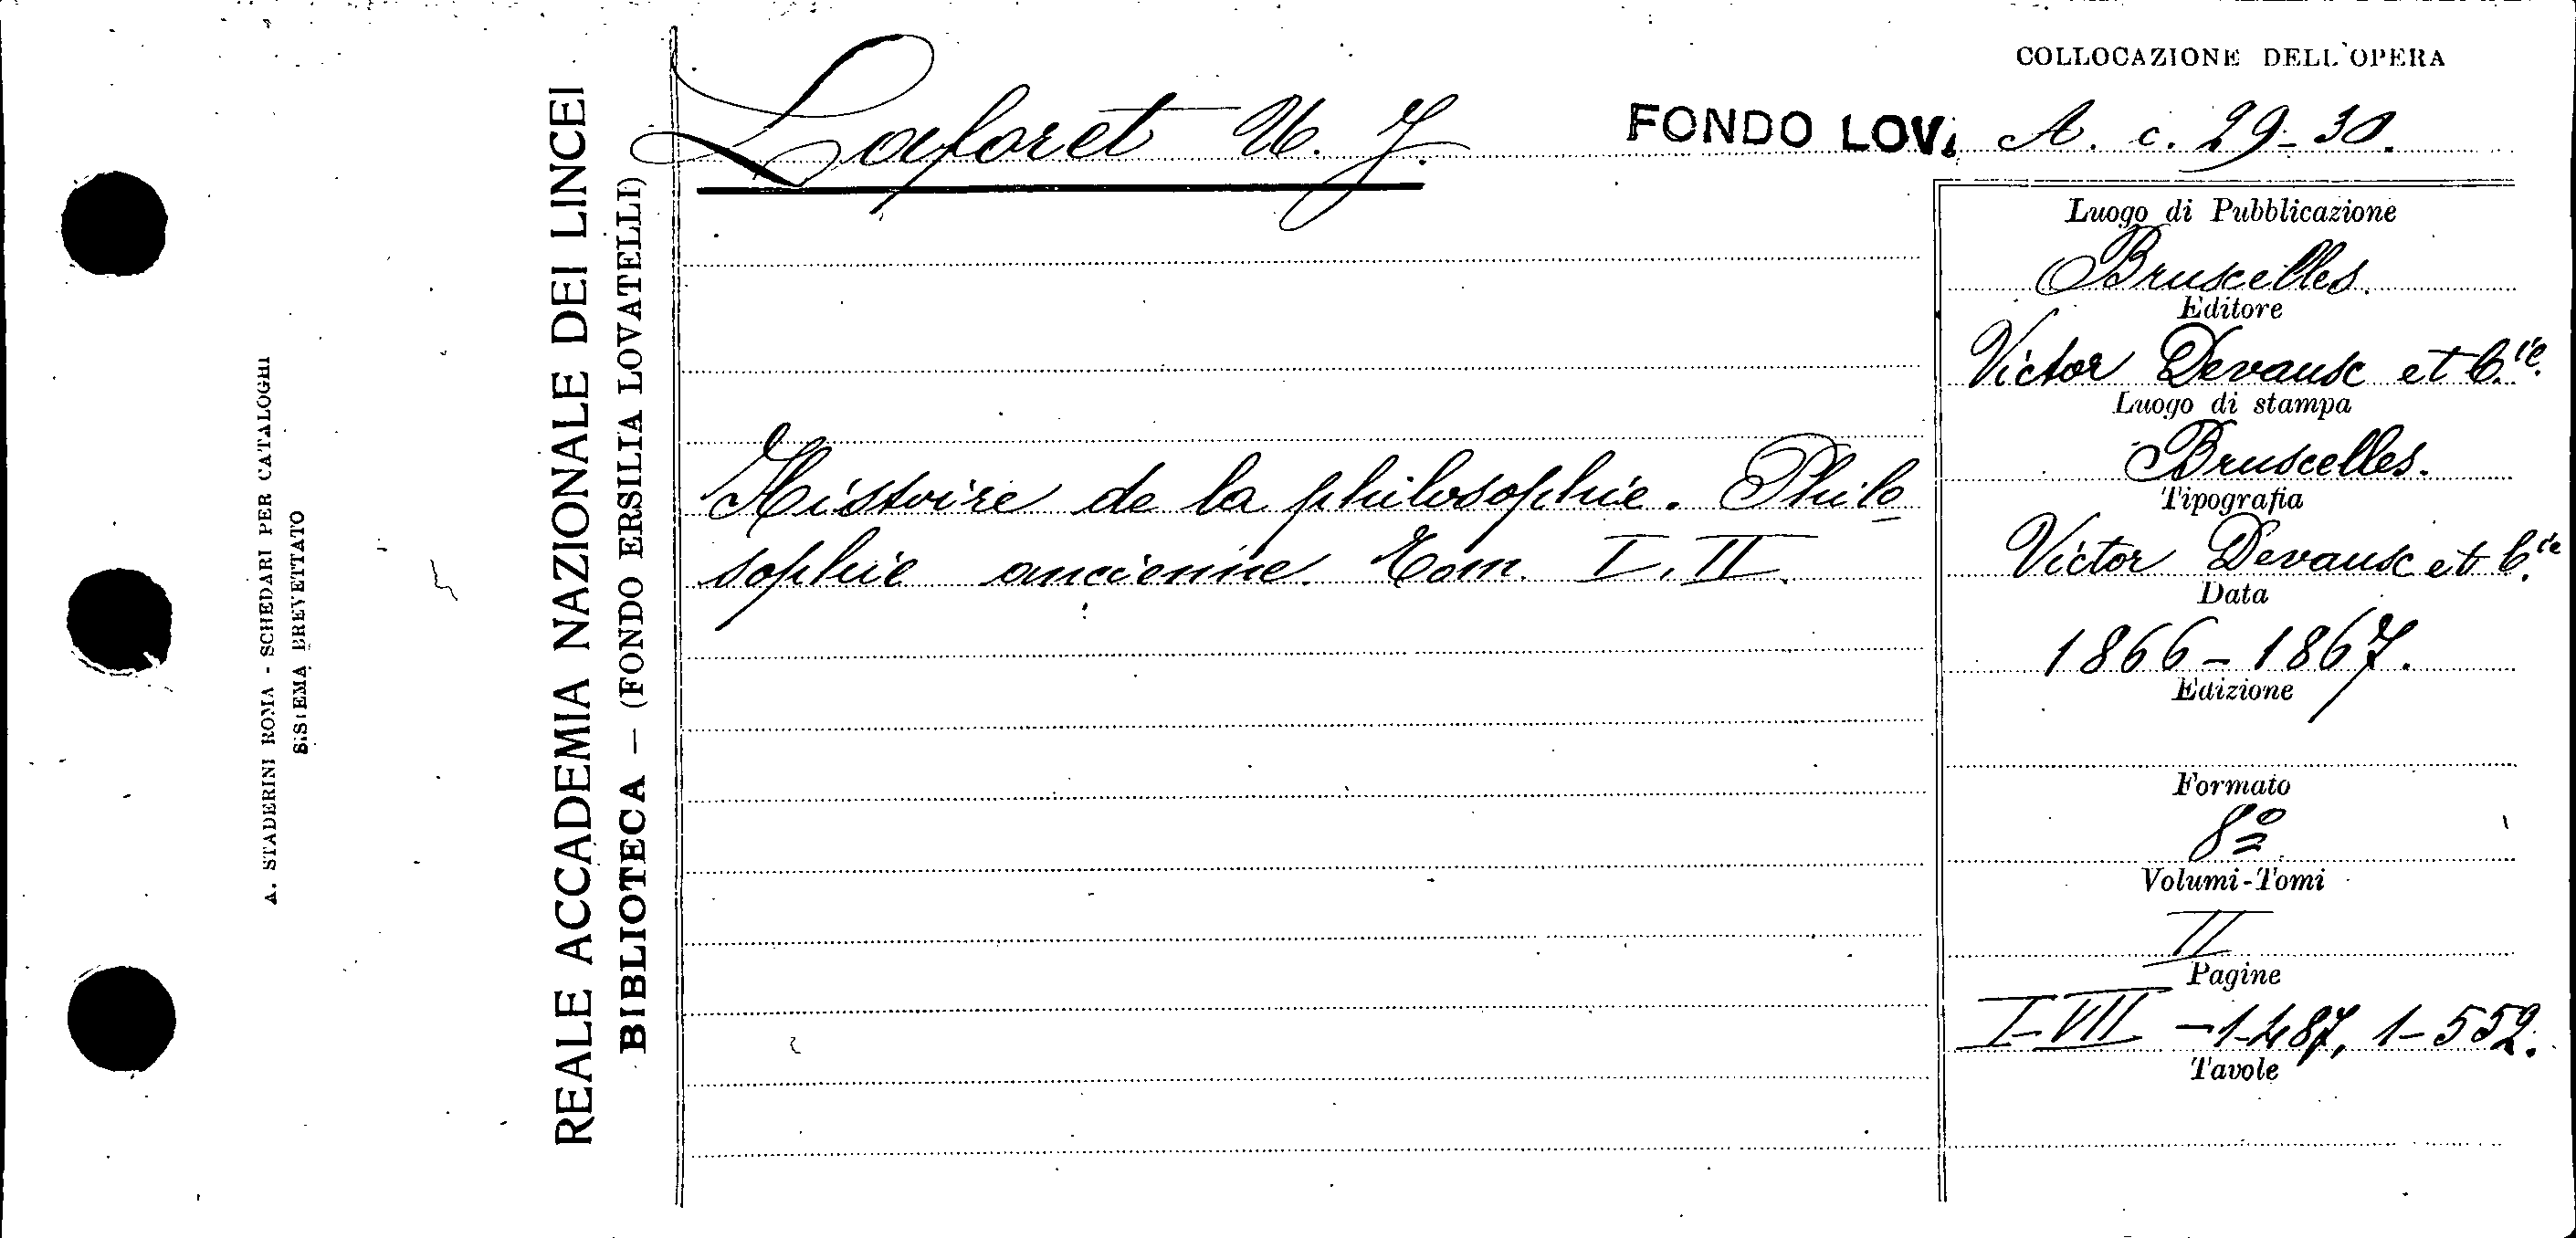 COLLOCAZIONE DELL'OPERA
Laforet N. J.
FONDO LOV. A. c. 29-30.
Histoire de la philosophie. Philo
sophie ancienne. Tom. I. II.
Luogo di Pubblicazione
Bruxelles.
Editore
Victor Devaux et C.ie
Luogo di stampa
Bruxelles.
Tipografia
Victor Devaux et C.ie
Data
1866-1867.
Edizione
Formato
8º
Volumi-Tomi
II
Pagine
I-VII - 1-487, 1-552.
Tavole
REALE ACCADEMIA NAZIONALE DEI LINCEI
BIBLIOTECA - (FONDO ERSILIA LOVATELLI)
A. STADERINI ROMA - SCHEDARI PER CATALOGHI
SISTEMA BREVETTATO